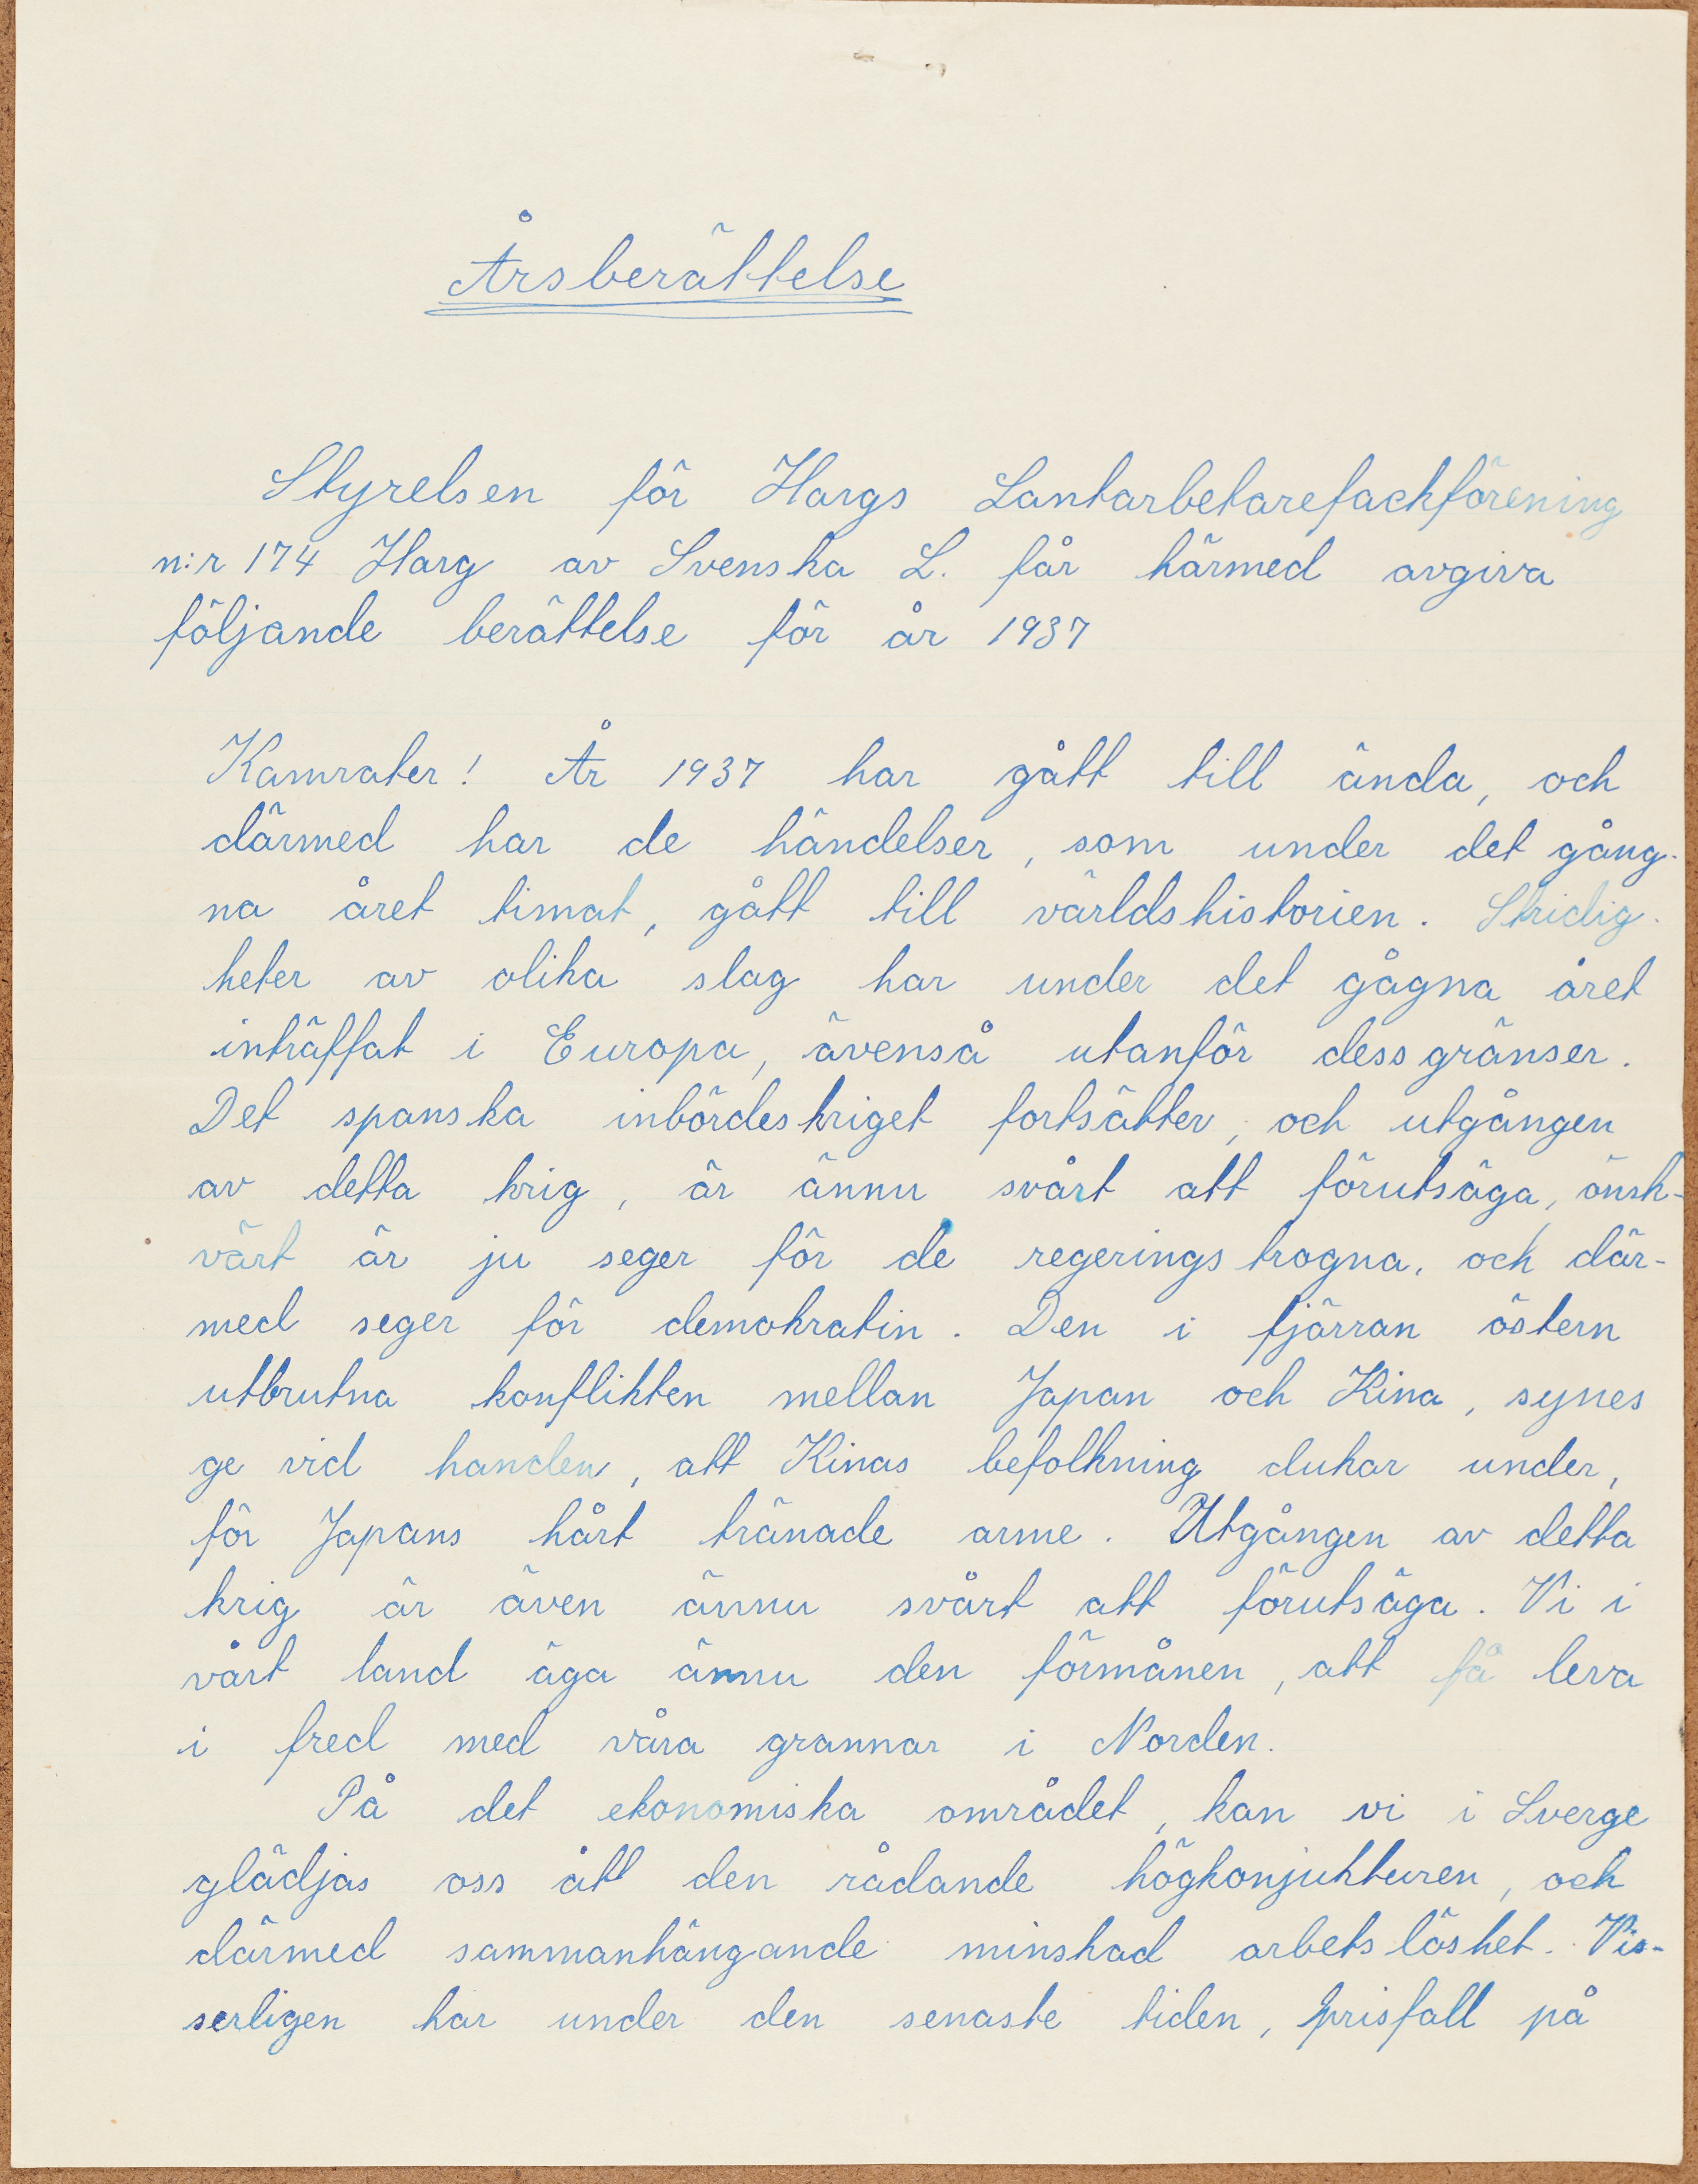 Årsberättelse
Styrelsen för Hargs Lantarbetarefackförening
n:r 174 Harg av Svenska L. får härmed avgiva
följande berättelse för år 1937
Kamrater! År 1937 har gått till ända, och
därmed har de händelser, som under det gång-
na året timat, gått till världshistorien. Stridig-
heter av olika slag har under det gågna året
inträffat i Europa, ävenså utanför dess gränser.
Det spanska inbördeskriget fortsätter, och utgången
av detta krig, är ännu svårt att förutsäga, önsk-
värt är ju seger för de regeringstrogna, och där-
med seger för demokratin. Den i fjärran östern
utbrutna konflikten mellan Japan och Kina, synes
ge vid handen, att Kinas befolkning dukar under,
för Japans hårt tränade arme. Utgången av detta
krig är även ännu svårt att förutsäga. Vi i
vårt land äga ännu den förmånen, att få leva
i fred med våra grannar i Norden.
På det ekonomiska området, kan vi i Sverge
glädjas oss ått den rådande högkonjukturen, och
därmed sammanhängande minskad arbetslöshet. Vis-
serligen har under den senaste tiden, prisfall på